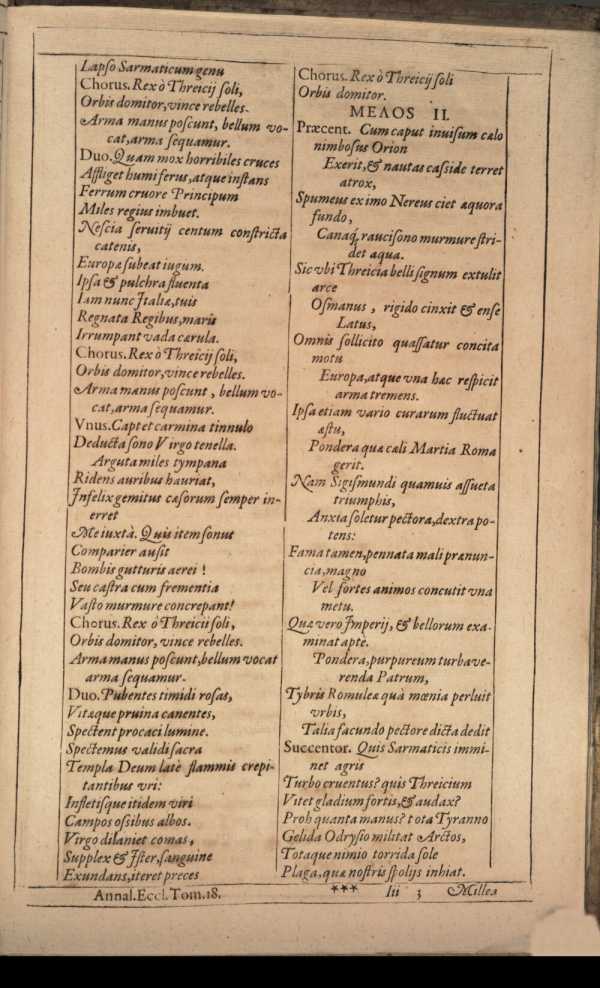 Lapso Sarmaticum genu
Chorus. Rex ò Threicij soli,
Orbis domitor, vince rebelles.
Arma manus poscunt, bellum vo-
cat, arma sequamur.
Duo. Quam mox horribiles cruces
Affliget humi ferus, atque instans
Ferrum cruore Principum
Miles regius imbuet.
Nescia seruitij centum constricta
catenis,
Europæ subeat iugum.
Ipsa & pulchra fluenta
Iam nunc Italiæ, tuis
Regnata Regibus, maris
Irrumpant vada cærula.
Chorus. Rex ò Threicij soli,
Orbis domitor, vince rebelles.
Arma manus poscunt, bellum vo-
cat, arma sequamur.
Vnus. Capt et carmina tinnulo
Deducta sono Virgo tenella.
Arguta miles tympana
Ridens auribus hauriat,
Infelix gemitus cæsorum semper in-
erret
Me iuxtà. Quis item sonus
Comparier ausit
Bombis gutturis aerei!
Seu castra cum frementia
Vasto murmure concrepant!
Chorus. Rex ò Threicii soli,
Orbis domitor, vince rebelles.
Arma manus poscunt, bellum vocat
arma sequamur.
Duo. Pubentes timidi rosas,
Vitæque pruina canentes,
Spectent procaci lumine.
Spectemus validi sacra
Templa Deum latè flammis crepi-
tantibus vri:
Infletisque itidem viri
Campos ossibus albos.
Virgo dilaniet comas,
Supplex & Ister, sanguine
Exundans, iteret preces
Annal. Eccl. Tom. 18.
Chorus. Rex ò Threicij soli
Orbis domitor.
ΜΕΛΟΣ II.
Præcent. Cum caput inuisum cælo
nimbosus Orion
Exerit, & nautas casside terret
atrox,
Spumeus ex imo Nereus ciet æquora
fundo,
Canaq́; raucisono murmure stri-
det aqua.
Sic vbi Threicia belli signum extulit
arce
Osmanus, rigido cinxit & ense
Latus,
Omnis sollicito quassatur concita
motu
Europa, atque vna hæc respicit
arma tremens.
Ipsa etiam vario curarum fluctuat
æstu,
Pondera quæ cæli Martia Roma
gerit.
Nam Sigismundi quamuis assueta
triumphis,
Anxia soletur pectora, dextra po-
tens:
Fama tamen, pennata mali prænun-
cia, magno
Vel fortes animos concutit vna
metu.
Quæ vero Imperij, & bellorum exa-
minat aptè.
Pondera, purpureum turba ve-
renda Patrum,
Tybris Romuleæ quà mœnia perluit
vrbis,
Talia facundo pectore dicta dedit
Succentor. Quis Sarmaticis immi-
net agris
Turbo cruentus? quis Threicium
Vitet gladium fortis, & audax?
Proh quanta manus? tota Tyranno
Gelida Odrysio militat Arctos,
Totaque nimio torrida sole
Plaga, quæ nostris spolijs inhiat.
*** Iii 3 Millea